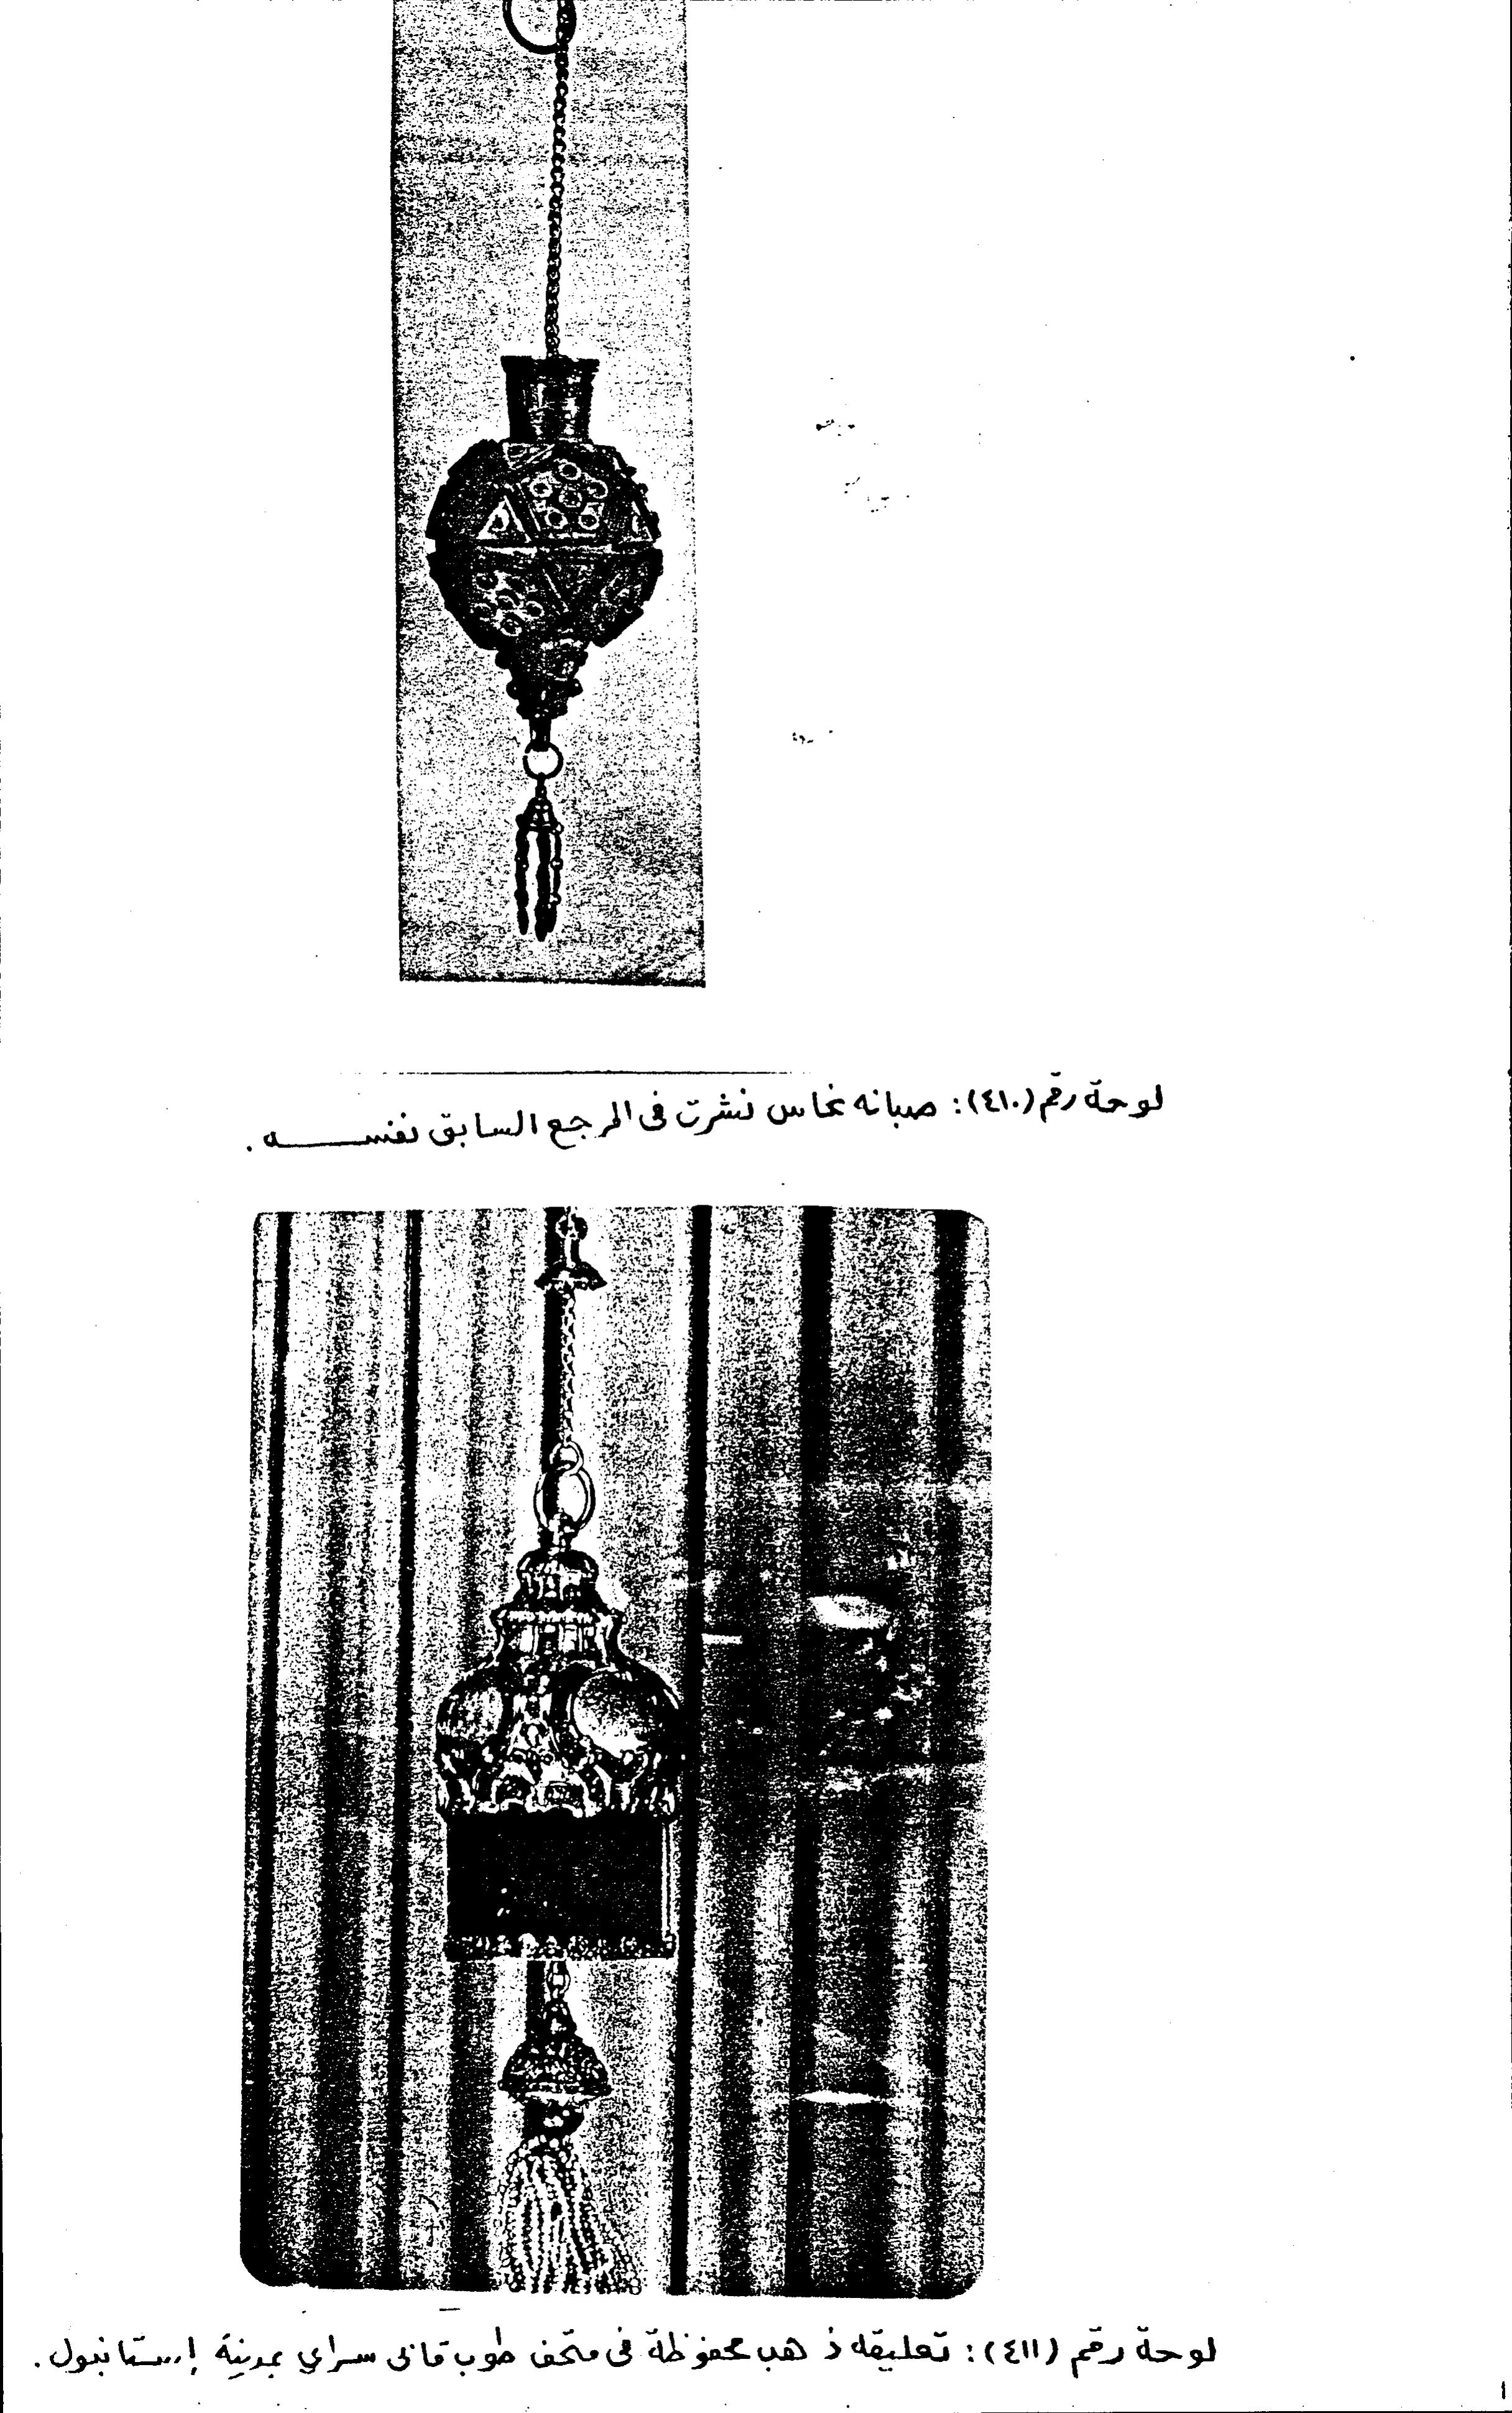 لوحة رقم (٤١٠): صبانه نحاس نشرت فى المرجع السابق نفسه.
لوحة رقم (٤١١): تعليقه ذهب محفوظة فى متحف طوب قابى سراي بمدينة إستانبول.